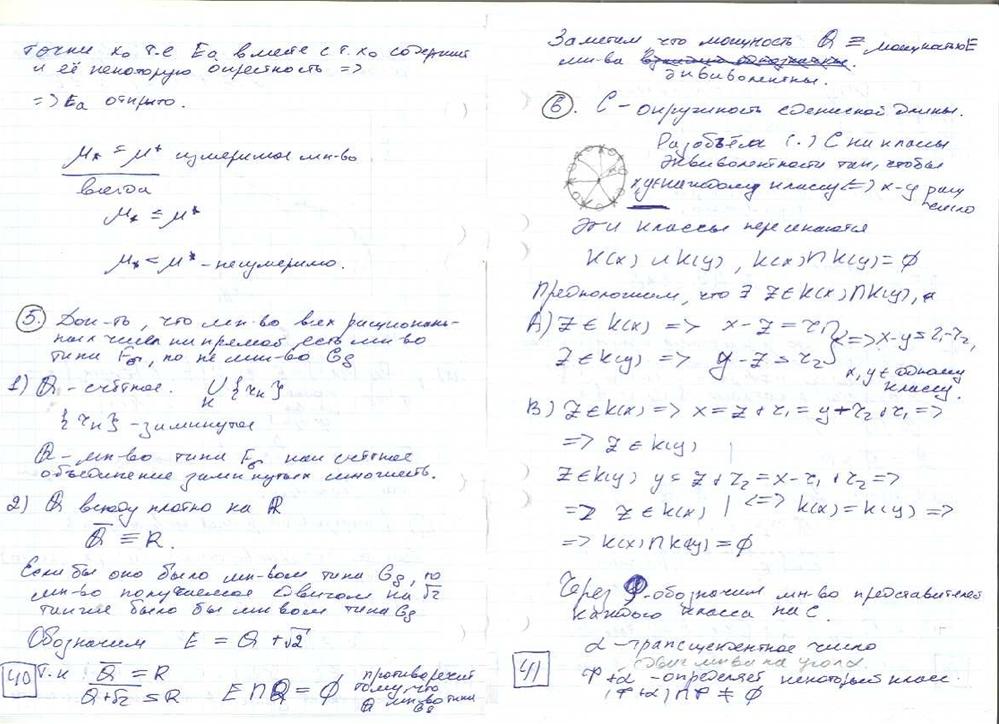 точки x₀ т.е Eα вместе с т. x₀ содержит
и её некоторую окрестность =>
=> Eα открыто.
μ* = μ* измеримое мн-во
всегда
μ* ≤ μ*
μ* < μ* - неизмеримо.
5. Док-ть, что мн-во всех рациональ-
ных чисел на прямой есть мн-во
типа Fσ, но не мн-во Gδ
1) Q - счётное. ∪ {rₖ}
к
{rₖ} - замкнутое
Q - мн-во типа Fσ как счётное
объединение замкнутых множеств.
2) Q всюду плотно на R
Q̅ ≡ R.
Если бы оно было мн-вом типа Gδ, то
мн-во получаемое сдвигом на √2
также было бы мн-вом типа Gδ
Обозначим E = Q + √2
Т.к Q̅ = R
Q+√2 = R E ∩ Q = ∅ противоречит
тому, что
Q мн-во типа
Gδ
40
Заметим что мощность Q ≡ мощностьE
мн-ва
эквивалентны.
6. C - окружность единичной длины.
Разобьём (.) C на классы
эквивалентности так, чтобы
x,y ∈ каждому классу <=> x-y рац
число
Эти классы пересекаются
K(x) и K(y), K(x)∩K(y)=∅
Предположим, что ∃ z∈K(x)∩K(y),
A) z ∈ K(x) => x - z = r₁
z ∈ K(y) => y - z = r₂ } <=> x-y = r₁-r₂,
x,y ∈ одному
классу.
B) z∈K(x) => x = z + r₁ = y + r₂ + r₁ =>
=> z ∈ K(y)
z∈K(y) y = z + r₂ = x - r₁ + r₂ =>
=> z ∈ K(x) | <=> K(x) = K(y) =>
=> K(x)∩K(y) = ∅
Через φ обозначим мн-во представителей
каждого класса на C.
α - трансцендентное число
сдвиг мн-ва на угол α
φ+α - определяет некоторый класс.
(φ+α)∩φ ≠ ∅
41